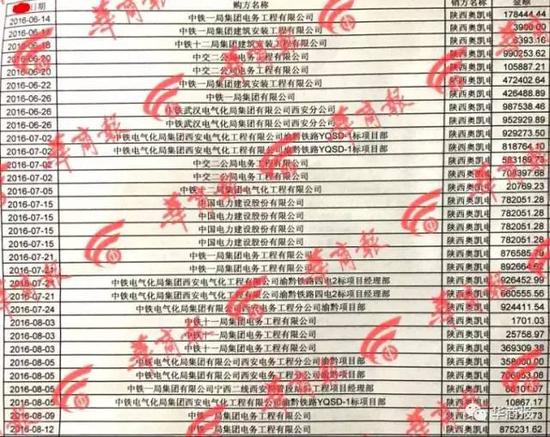 日期 购方名称 销方名称 金额
2016-06-14 中铁一局集团电务工程有限公司 陕西奥凯电 178444.44
2016-06-1 中铁一局集团建筑安装工程有限公司 陕西奥凯电 3900.00
2016-06-18 中铁十二局集团电务工程有限公司 陕西奥凯电 8393.16
中交二公局电务工程有限公司 陕西奥凯电 990253.62
2016-06-20 中交二公局电务工程有限公司 陕西奥凯电 105887.21
2016-06-22 中铁一局集团建筑安装工程有限公司 陕西奥凯电 472402.64
2016-06-26 中铁一局集团有限公司 陕西奥凯电 426488.89
2016-06-26 中铁武汉电气化局集团有限公司西安分公司 陕西奥凯电 987538.46
2016-06-26 中铁武汉电气化局集团有限公司西安分公司 陕西奥凯电 952929.89
2016-07-02 中铁电气化局集团西安电气化工程有限公司渝黔铁路YQSD-1标项目部 陕西奥凯电 929273.50
2016-07-02 中铁电气化局集团西安电气化工程有限公司渝黔铁路YQSD-1标项目部 陕西奥凯电 818764.10
2016-07-02 中交二公局电务工程有限公司 陕西奥凯电 583189.73
2016-07-02 中交二公局电务工程有限公司 陕西奥凯电 708397.68
2016-07-05 中铁一局集团电气化工程有限公司 陕西奥凯电 20769.23
2016-07-15 中国电力建设股份有限公司 陕西奥凯电 782051.28
2016-07-15 中国电力建设股份有限公司 陕西奥凯电 782051.28
2016-07-15 中国电力建设股份有限公司 陕西奥凯电 782051.28
2016-07-15 中国电力建设股份有限公司 陕西奥凯电 782051.28
2016-07-21 中铁一局集团电务工程有限公司 陕西奥凯电 876585.79
2016-07-21 中铁一局集团电务工程有限公司 陕西奥凯电 892664.62
中铁电气化局集团西安电气化工程有限公司渝黔铁路四电2标项目经理部 陕西奥凯电 926452.99
2016-07-21 中铁电气化局集团西安电气化工程有限公司渝黔铁路四电2标项目经理部 陕西奥凯电 660555.56
2016-07-24 中铁电气化局集团有限公司西安电务工程分公司渝黔项目部 陕西奥凯电 924411.54
2016-08-03 中铁十一局集团电务工程有限公司 陕西奥凯电 1701.03
2016-08-03 中铁十一局集团电务工程有限公司 陕西奥凯电 25758.97
2016-08-03 中铁十一局集团电务工程有限公司 陕西奥凯电 369309.38
2016-08-05 中铁电气化局集团有限公司西安电务工程分公司渝黔项目部 陕西奥凯电
2016-08-05 中铁电气化局集团有限公司西安电务工程分公司渝黔项目部 陕西奥凯电
2016-08-05 中铁一局集团有限公司宁西二线西安 工程项目经理部 陕西奥凯电
2016-08-05 中铁电气化局集团西安电气化工程有限公司渝黔铁路YQSD-1标项目部 陕西奥凯电 10867.17
2016-08-09 中铁一局集团电务工程有限公司 陕西奥凯电
2016-08-12 中铁一局集团电务工程有限公司 陕西奥凯电 875231.62
华商报